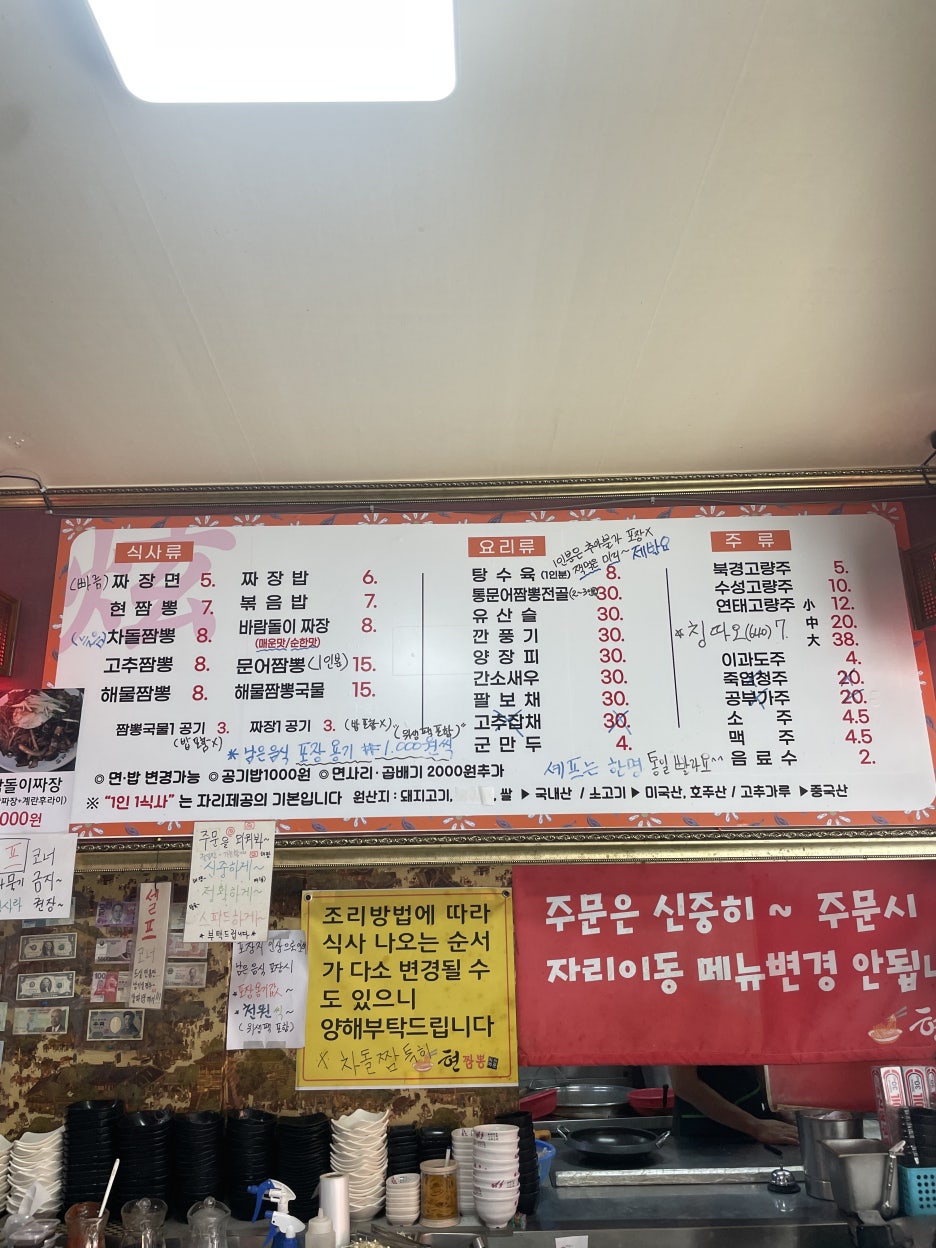 炫
식사류
(빠름) 짜장면 5.
현짬뽕 7.
차돌짬뽕 8.
고추짬뽕 8.
해물짬뽕 8.
짜장밥 6.
볶음밥 7.
바람돌이 짜장 8.
(매운맛/순한맛)
문어짬뽕 (1인분) 15.
해물짬뽕국물 15.
짬뽕국물1 공기 3.
(밥 포함X)
짜장1 공기 3. (밥 포함X)
"(위생팩 포함)"
* 남은음식 포장 용기 1.000원씩
◎ 면·밥 변경가능 ◎ 공기밥1000원 ◎ 면사리·곱배기 2000원추가
※ "1인 1식사" 는 자리제공의 기본입니다 원산지 : 돼지고기, 쌀 ▶ 국내산 / 소고기 ▶ 미국산, 호주산 / 고추가루 ▶중국산
요리류
1인분은 추가불가 포장X
제발요
탕수육 (1인분) 8.
통문어짬뽕전골 30.
유산슬 30.
깐풍기 30.
양장피 30.
간소새우 30.
팔보채 30.
고추잡채 30.
군만두 4.
셰프는 한명 통일 빨라요~
주류
북경고량주 5.
수성고량주 10.
연태고량주 小 12.
中 20.
大 38.
* 칭따오(640) 7.
이과도주 4.
죽엽청주 20.
공부가주 20.
소주 4.5
맥주 4.5
음료수 2.
돌이짜장
짜장+계란후라이)
000원
코너
금지~
권장~
셀프
코너
주문을
신중하게~
정확하게~
스피드하게~
*부탁드립니다*
남은 음식 포장시
*포장 용기값~
*천원씩~
(위생팩 포함)
조리방법에 따라
식사 나오는 순서
가 다소 변경될 수
도 있으니
양해부탁드립니다
현짬뽕
주문은 신중히 ~ 주문시
자리이동 메뉴변경 안됩니
현